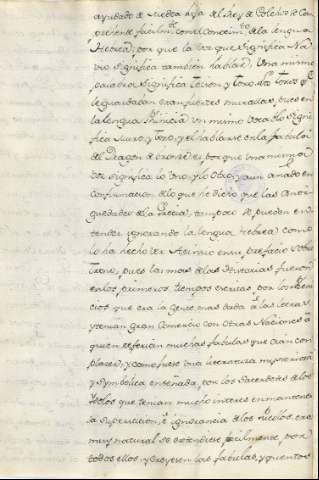 ayudado de Medea hija del Rey de Colchos se Com
prende facilm.te con el Conocim.to de la lengua
Hebrea; por que la voz que significa Na
vio significa tambien hablar; Una misma
palabra significa tesoro, y toro, los toros q.e
le guardaban eran fuertes murallas, pues en
la lengua Fenicia un mismo vocablo signi
fica Muro, y toro, y el hablarse en la fabula
del Dragon de es por que una misma
voz significa lo uno, y lo otro, y aun añado en
confirmacion de lo que he dicho que las Anti
guedades de la Grecia, tampoco se pueden en
tender ignorando la lengua hebrea como
lo ha hecho ver en su prefacio sobre
pues las mas de las Historias fueron
en los primeros tiempos escritas por los Feni
cios que era la Gente mas dada á las letras,
y tenian Gran Comercio con otras Naciones á
quien referian muchas fabulas que oian con
placer, y como fuese una literatura misteriosa
y Symbolica enseñada por los Sacerdotes de los
Idolos que tenian mucho interes en mantener
la supersticion, é ignorancia de los Pueblos, era
muy natural se extendiese facilmente por
todos ellos, y creyesen las fabulas, y quentos